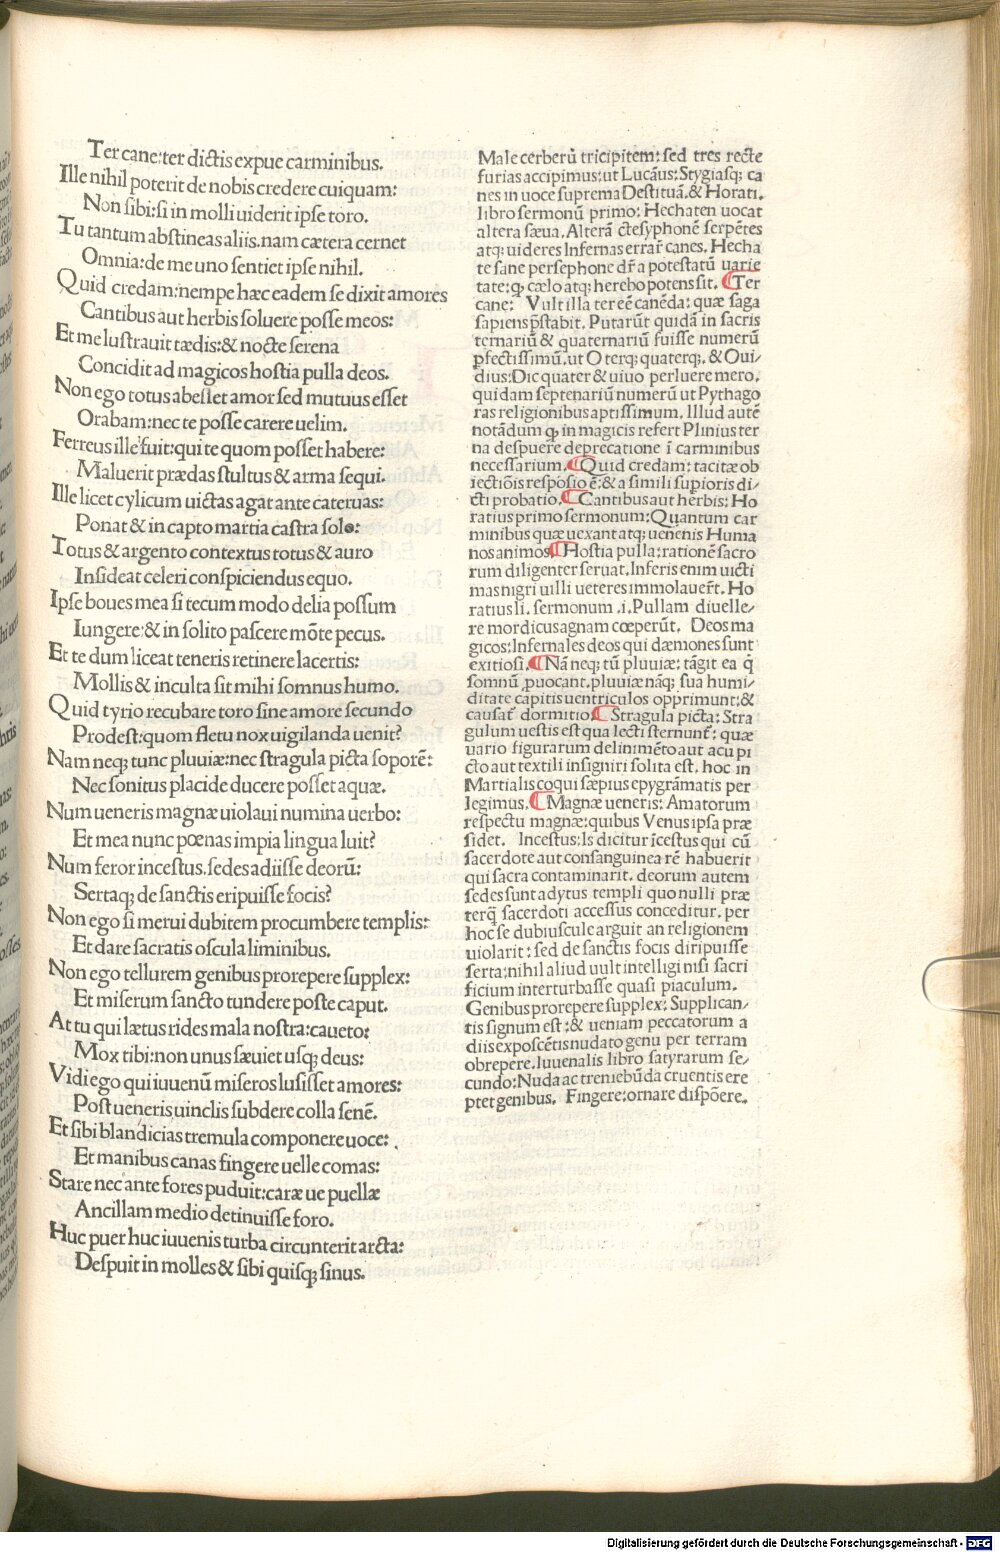 Ter cane: ter dictis expue carminibus.
Ille nihil poterit de nobis credere cuiquam:
Non sibi: si in molli uiderit ipse toro.
Tu tantum abstineas aliis. nam cætera cernet
Omnia: de me uno sentiet ipse nihil.
Quid credam: nempe hæc eadem se dixit amores
Cantibus aut herbis soluere posse meos:
Et me lustrauit tædis: & nocte serena
Concidit ad magicos hostia pulla deos.
Non ego totus abesset amor sed mutuus esset
Orabam: nec te posse carere uelim.
Ferreus ille fuit: qui te quom posset habere:
Maluerit prædas stultus & arma sequi.
Ille licet cylicum uictas agat ante cateruas:
Ponat & in capto martia castra solo:
Totus & argento contextus totus & auro
Insideat celeri conspiciendus equo.
Ipse boues mea si tecum modo delia possum
Iungere: & in solito pascere mōte pecus.
Et te dum liceat teneris retinere lacertis:
Mollis & inculta sit mihi somnus humo.
Quid tyrio recubare toro sine amore secundo
Prodest: quom fletu nox uigilanda uenit?
Nam neq; tunc pluuiæ: nec stragula picta soporē:
Nec sonitus placide ducere posset aquæ.
Num ueneris magnæ uiolaui numina uerbo:
Et mea nunc pœnas impia lingua luit?
Num feror incestus. sedes adiisse deorū:
Sertaq; de sanctis eripuisse focis?
Non ego si merui dubitem procumbere templis:
Et dare sacratis oscula liminibus.
Non ego tellurem genibus prorepere supplex:
Et miserum sancto tundere poste caput.
At tu qui lætus rides mala nostra: caueto:
Mox tibi: non unus sæuiet usq; deus:
Vidi ego qui iuuenū miseros lusisset amores:
Post ueneris uinclis subdere colla senē.
Et sibi blandicias tremula componere uoce:
Et manibus canas fingere uelle comas:
Stare nec ante fores puduit: caræ ue puellæ
Ancillam medio detinuisse foro.
Huc puer huc iuuenis turba circunterit arcta:
Despuit in molles & sibi quisq; sinus.
Male cerberū tricipitem: sed tres recte
furias accipimus: ut Lucāus: Stygiasq; ca
nes in uoce suprema Destituā. & Horati.
libro sermonū primo: Hechaten uocat
altera sæua. Alterā ctesyphonē serpētes
atq; uideres Infernas errar̄ canes. Hecha
te sane persephone dr̄ a potestatū uarie
tate: q; cælo atq; herebo potens sit. ¶ Ter
cane: Vult illa ter eē canēda: quæ saga
sapiens p̄stabit. Putarūt quidā in sacris
ternariū & quaternariū fuisse numerū
pfectissimū. ut O terq; quaterq;. & Oui/
dius: Dic quater & uiuo perluere mero.
quidam septenariū numerū ut Pythago
ras religionibus aptissimum. Illud autē
notādum q; in magicis refert Plinius ter
na despuere deprecatione ī carminibus
necessarium. ¶ Quid credam: tacitæ ob
iectiōis respōsio ē: & a simili supioris di/
cti probatio. ¶ Cantibus aut herbis: Ho
ratius primo sermonum: Quantum car
minibus quæ uexant atq; uenenis Huma
nos animos ¶ Hostia pulla: rationē sacro
rum diligenter seruat. Inferis enim uicti
mas nigri uilli ueteres immolauer̄t. Ho
ratius li. sermonum .i. Pullam diuelle/
re mordicus agnam cœperūt. Deos ma
gicos: Infernales deos qui dæmones sunt
exitiosi. ¶ Nā neq; tū pluuiæ: tāgit ea q̄
somnū puocant. pluuiæ nāq; sua humi/
ditate capitis uentriculos opprimunt: &
causat̄ dormitio. ¶ Stragula picta: Stra
gulum uestis est qua lecti sternunt̄: quæ
uario figurarum delinimēto aut acu pi
cto aut textili insigniri solita est. hoc in
Martialis coqui sæpius epygrāmatis per
legimus. ¶ Magnæ ueneris: Amatorum
respectu magnæ: quibus Venus ipsa præ
sidet. Incestus: Is dicitur īcestus qui cū
sacerdote aut consanguinea rē habuerit
qui sacra contaminarit. deorum autem
sedes sunt adytus templi quo nulli præ
terq̄ sacerdoti accessus conceditur. per
hoc se dubiuscule arguit an religionem
uiolarit: sed de sanctis focis diripuisse
serta: nihil aliud uult intelligi nisi sacri
ficium interturbasse quasi piaculum.
Genibus prorepere supplex: Supplican/
tis signum est: & ueniam peccatorum a
diis exposcētis nudato genu per terram
obrepere. Iuuenalis libro satyrarum se/
cundo: Nuda ac tremebūda cruentis ere
ptet genibus. Fingere: ornare dispōere.
Digitalisierung gefördert durch die Deutsche Forschungsgemeinschaft - DFG